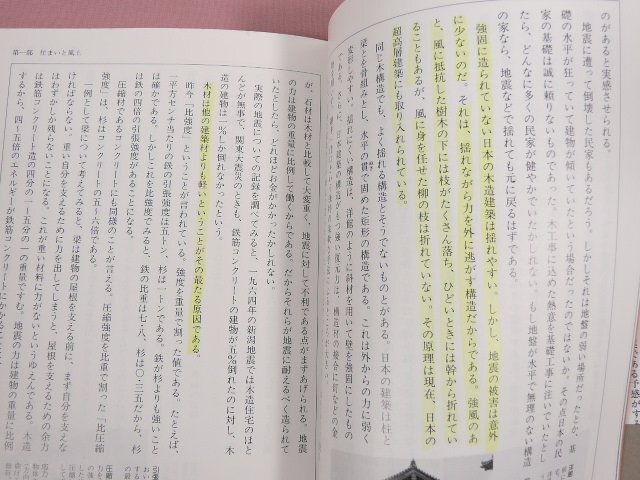 のがあると実感させられる。
地震に遭って倒壊した民家もあるだろう。しかしそれは地盤の弱い場所だったとか、基
礎の水平が狂っていて建物が傾いていたという場合だったのではないか。その点日本の民
家の基礎は誠に頼りないものであった。木工事に込めた熱意を基礎工事に注いでいたとし
たら、どんなに多くの民家が健やかでいたかしれない。もし地盤が水平で無理のない構造
の家なら、地震などで揺れても元に戻るはずである。
強固に造られていない日本の木造建築は揺れやすい。しかし、地震の被害は意外
に少ないのだ。それは、揺れながら力を外に逃がす構造だからである。強風のあ
と、風に抵抗した樹木の下には枝がたくさん落ち、ひどいときには幹から折れてい
ることもあるが、風に身を任せた柳の枝は折れていない。その原理は現在、日本の
超高層建築にも取り入れられている。
同じ木構造でも、よく揺れる構造とそうでないものとがある。日本の建築は柱と
梁とを骨組みとし、水平の貫で固めた矩形の構造である。これは外からの力に弱く
第一部 住まいと風土
が、石材は木材と比較して大変重く、地震に対して不利である点がまずあげられる。地震
の力は建物の重量に比例して働くからである。だからそれらが地震に耐えるべく造られて
いたとしたら、どれほどお金がかかったかしれない。
実際の地震についての記録を調べてみると、一九六四年の新潟地震では木造住宅のほと
んどが無事で、関東大震災のときも、鉄筋コンクリートの建物が五％倒れたのに対し、木
造の建物は一％しか倒れなかったという。
木材は他の建築材よりも軽いということがその最たる原因である。
昨今「比強度」ということが言われている。強度を重量で割った値である。たとえば、
一平方センチ当たりの鉄の引張強度は五トン、杉は一トンである。鉄が杉よりも強いこと
は確かである。しかしこれを比強度でみると、鉄の比重は七・八、杉は〇・三五だから、杉
は鉄の四倍の引張強度があることになる。
圧縮材であるコンクリートにも同様のことが言える。圧縮強度を比重で割った「比圧縮
強度」は、杉はコンクリートの五〜六倍である。
一例として梁について考えてみると、梁は建物の屋根を支える前に、まず自分を支えな
ければならない。重い自分を支えるために力を出してしまうと、屋根を支えるための余力
はわずかしか残らないことになる。これが重い材料に力がないというゆえんである。木造
は鉄筋コンクリート造の四分の一〜五分の一の重量ですむ。地震の力は建物の重量に比例
するから、四〜五倍のエネルギーが鉄筋コンクリートにかかることに